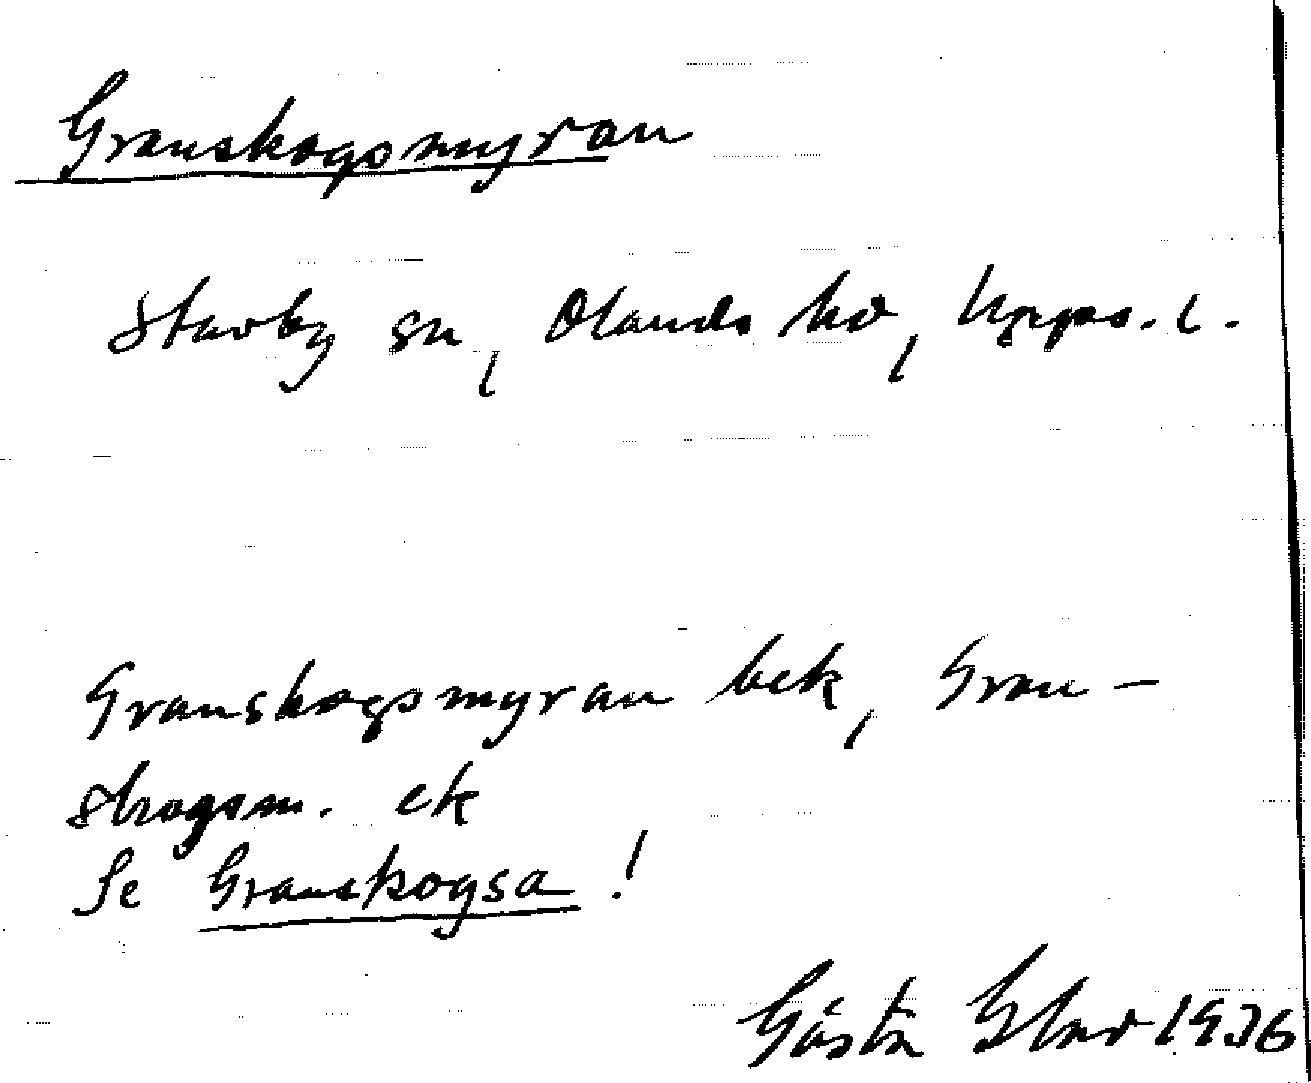 Granskogsmyran
Stavby sn, Olands hd, Upps. l.
Granskogsmyran bek, Gran-
skogsm. ek
Se Granskogsa!
Gösta 1936